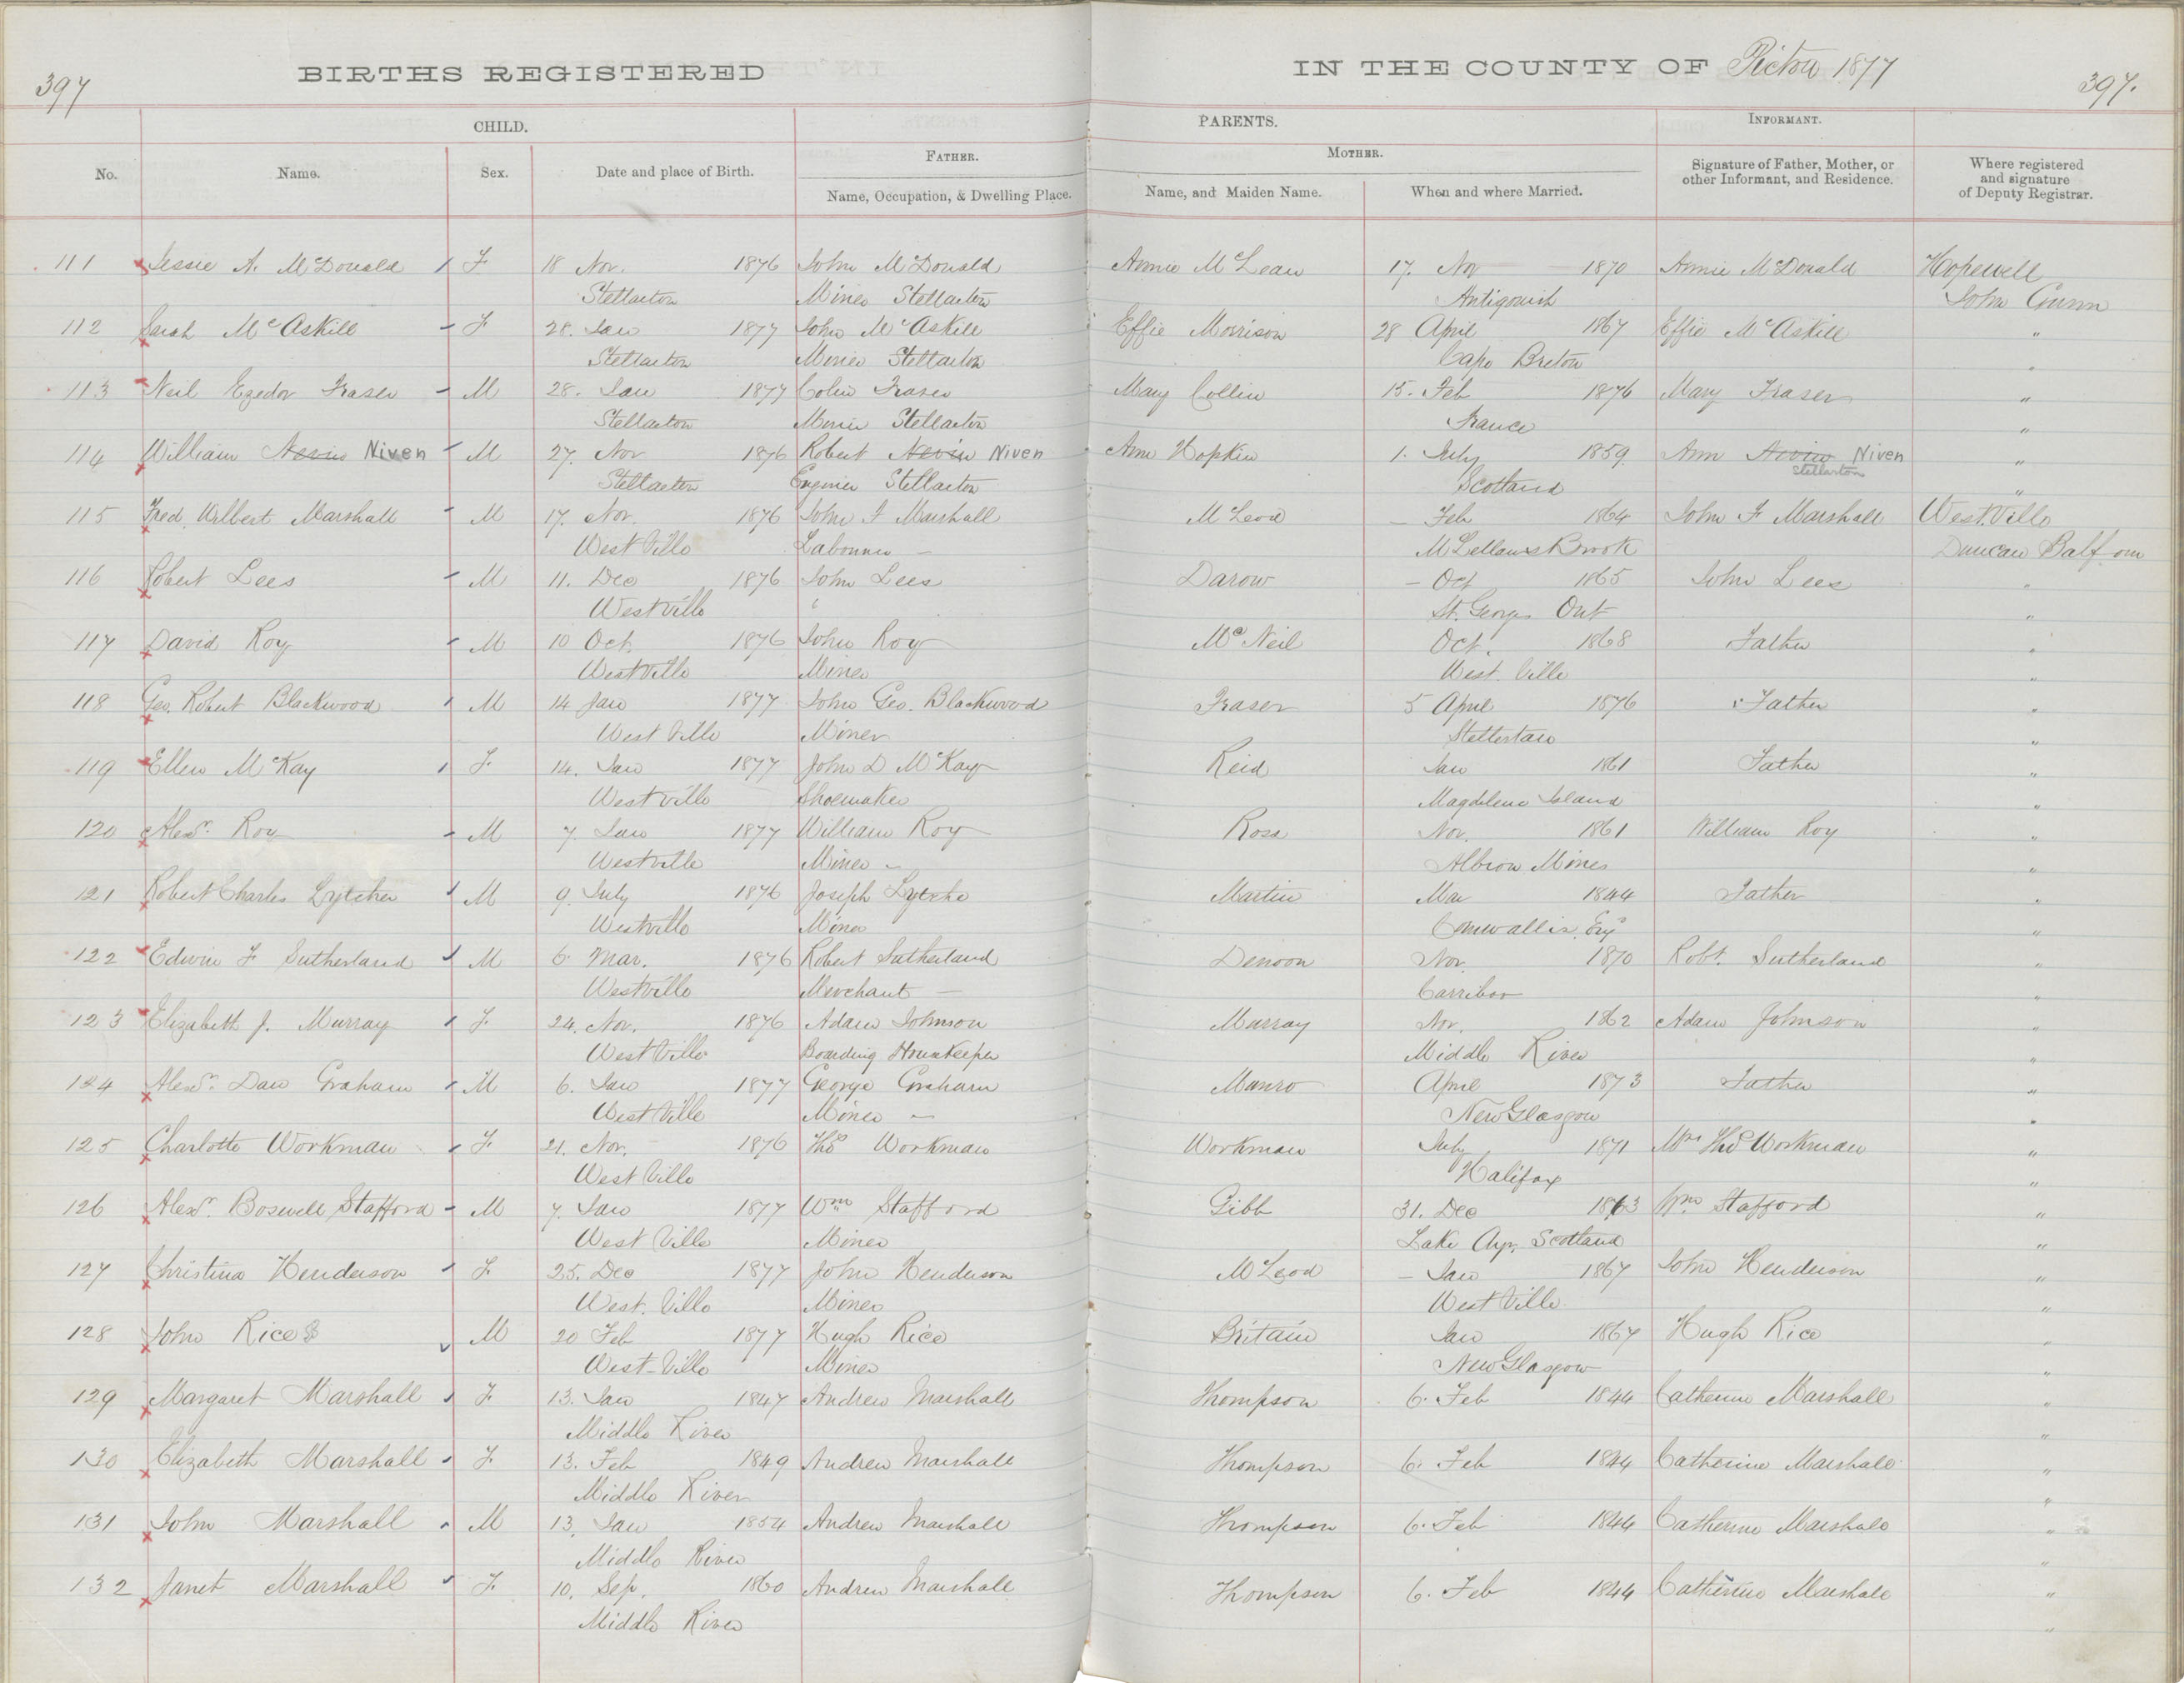 397
BIRTHS REGISTERED
IN THE COUNTY OF Pictou 1877
397.
CHILD.
PARENTS.
INFORMANT.
No.
Name.
Sex.
Date and place of Birth.
FATHER.
Name, Occupation, & Dwelling Place.
MOTHER.
Name, and Maiden Name.
When and where Married.
Signature of Father, Mother, or
other Informant, and Residence.
Where registered
and signature
of Deputy Registrar.
111 Jessie A. McDonald F 18 Nov. 1876 John McDonald Annie McLean 17. Nov 1870 Annie McDonald Hopewell
Stellarton Miner Stellarton Antigonish John Gunn
112 Sarah McAskill F. 28. Jan 1877 John McAskill Effie Morrison 28 April 1867 Effie McAskill "
Stellarton Miner Stellarton Cape Breton "
113 Neil Fraser M 28. Jan 1877 Colin Fraser Mary Collin 15. Feb 1876 Mary Fraser "
Stellarton Miner Stellarton France "
114 William Nevin Niven M 27. Nov 1876 Robert Nevin Niven Ann Hopkin 1. July 1859 Ann Nevin Niven "
Stellarton Engineer Stellarton Scotland Stellarton "
115 Fred. Wilbert Marshall M 17. Nov. 1876 John F Marshall McLeod – Feb 1864 John F Marshall West Ville
West Ville Labourer – McLellans Brook Duncan Balfour
116 Robert Lees M 11. Dec 1876 John Lees Darow – Oct 1865 John Lees "
Westville " St. Georges Ont "
117 David Roy M 10 Oct. 1876 John Roy McNeil Oct. 1868 Father "
Westville Miner West. Ville "
118 Geo. Robert Blackwood M 14 Jan 1877 John Geo. Blackwood Fraser 5 April 1876 Father "
West Ville Miner Stellertan "
119 Ellen McKay F. 14. Jan 1877 John D McKay Reid Jan 1861 Father "
Westville Shoemaker Magdelene Island "
120 Alexr. Roy M 7 Jan 1877 William Roy Ross Nov. 1861 William Roy "
Westville Miner – Albion Mines "
121 Robert Charles M 9. July 1876 Joseph Martin Mar 1844 Father "
Westville Miner Cornwallis "
122 Edwin F Sutherland M 6. Mar. 1876 Robert Sutherland Denoon Nov. 1870 Robt. Sutherland "
Westville Merchant – Carriboo "
123 Elizabeth J. Murray F. 24. Nov. 1876 Adam Johnson Murray Nov. 1862 Adam Johnson "
West Ville Boarding Housekeeper Middle River "
124 Alexr. Dan Graham M 6. Jan 1877 George Graham Munro April 1873 Father "
West Ville Miner – New Glasgow "
125 Charlotte Workman F. 21. Nov. 1876 Thos Workman Workman July 1871 Mrs Thos Workman "
West Ville Halifax "
126 Alexr. Boswell Stafford M 7. Jan 1877 Wm Stafford Gibb 31. Dec 1863 Wm Stafford "
West Ville Miner Lake Ayr, Scotland "
127 Christina Henderson F. 25. Dec 1877 John Henderson McLeod – Jan 1867 John Henderson "
West. Ville Miner West Ville "
128 John Rice M 20 Feb 1877 Hugh Rice Britain Jan 1867 Hugh Rice "
West-Ville Miner New Glasgow "
129 Margaret Marshall F. 13. Jan 1847 Andrew Marshall Thompson 6. Feb 1844 Catherine Marshall "
Middle River "
130 Elizabeth Marshall F. 13. Feb 1849 Andrew Marshall Thompson 6. Feb 1844 Catherine Marshall "
Middle River "
131 John Marshall M 13. Jan 1854 Andrew Marshall Thompson 6. Feb 1844 Catherine Marshall "
Middle River "
132 Janet Marshall F. 10. Sep. 1860 Andrew Marshall Thompson 6. Feb 1844 Catherine Marshall "
Middle River "